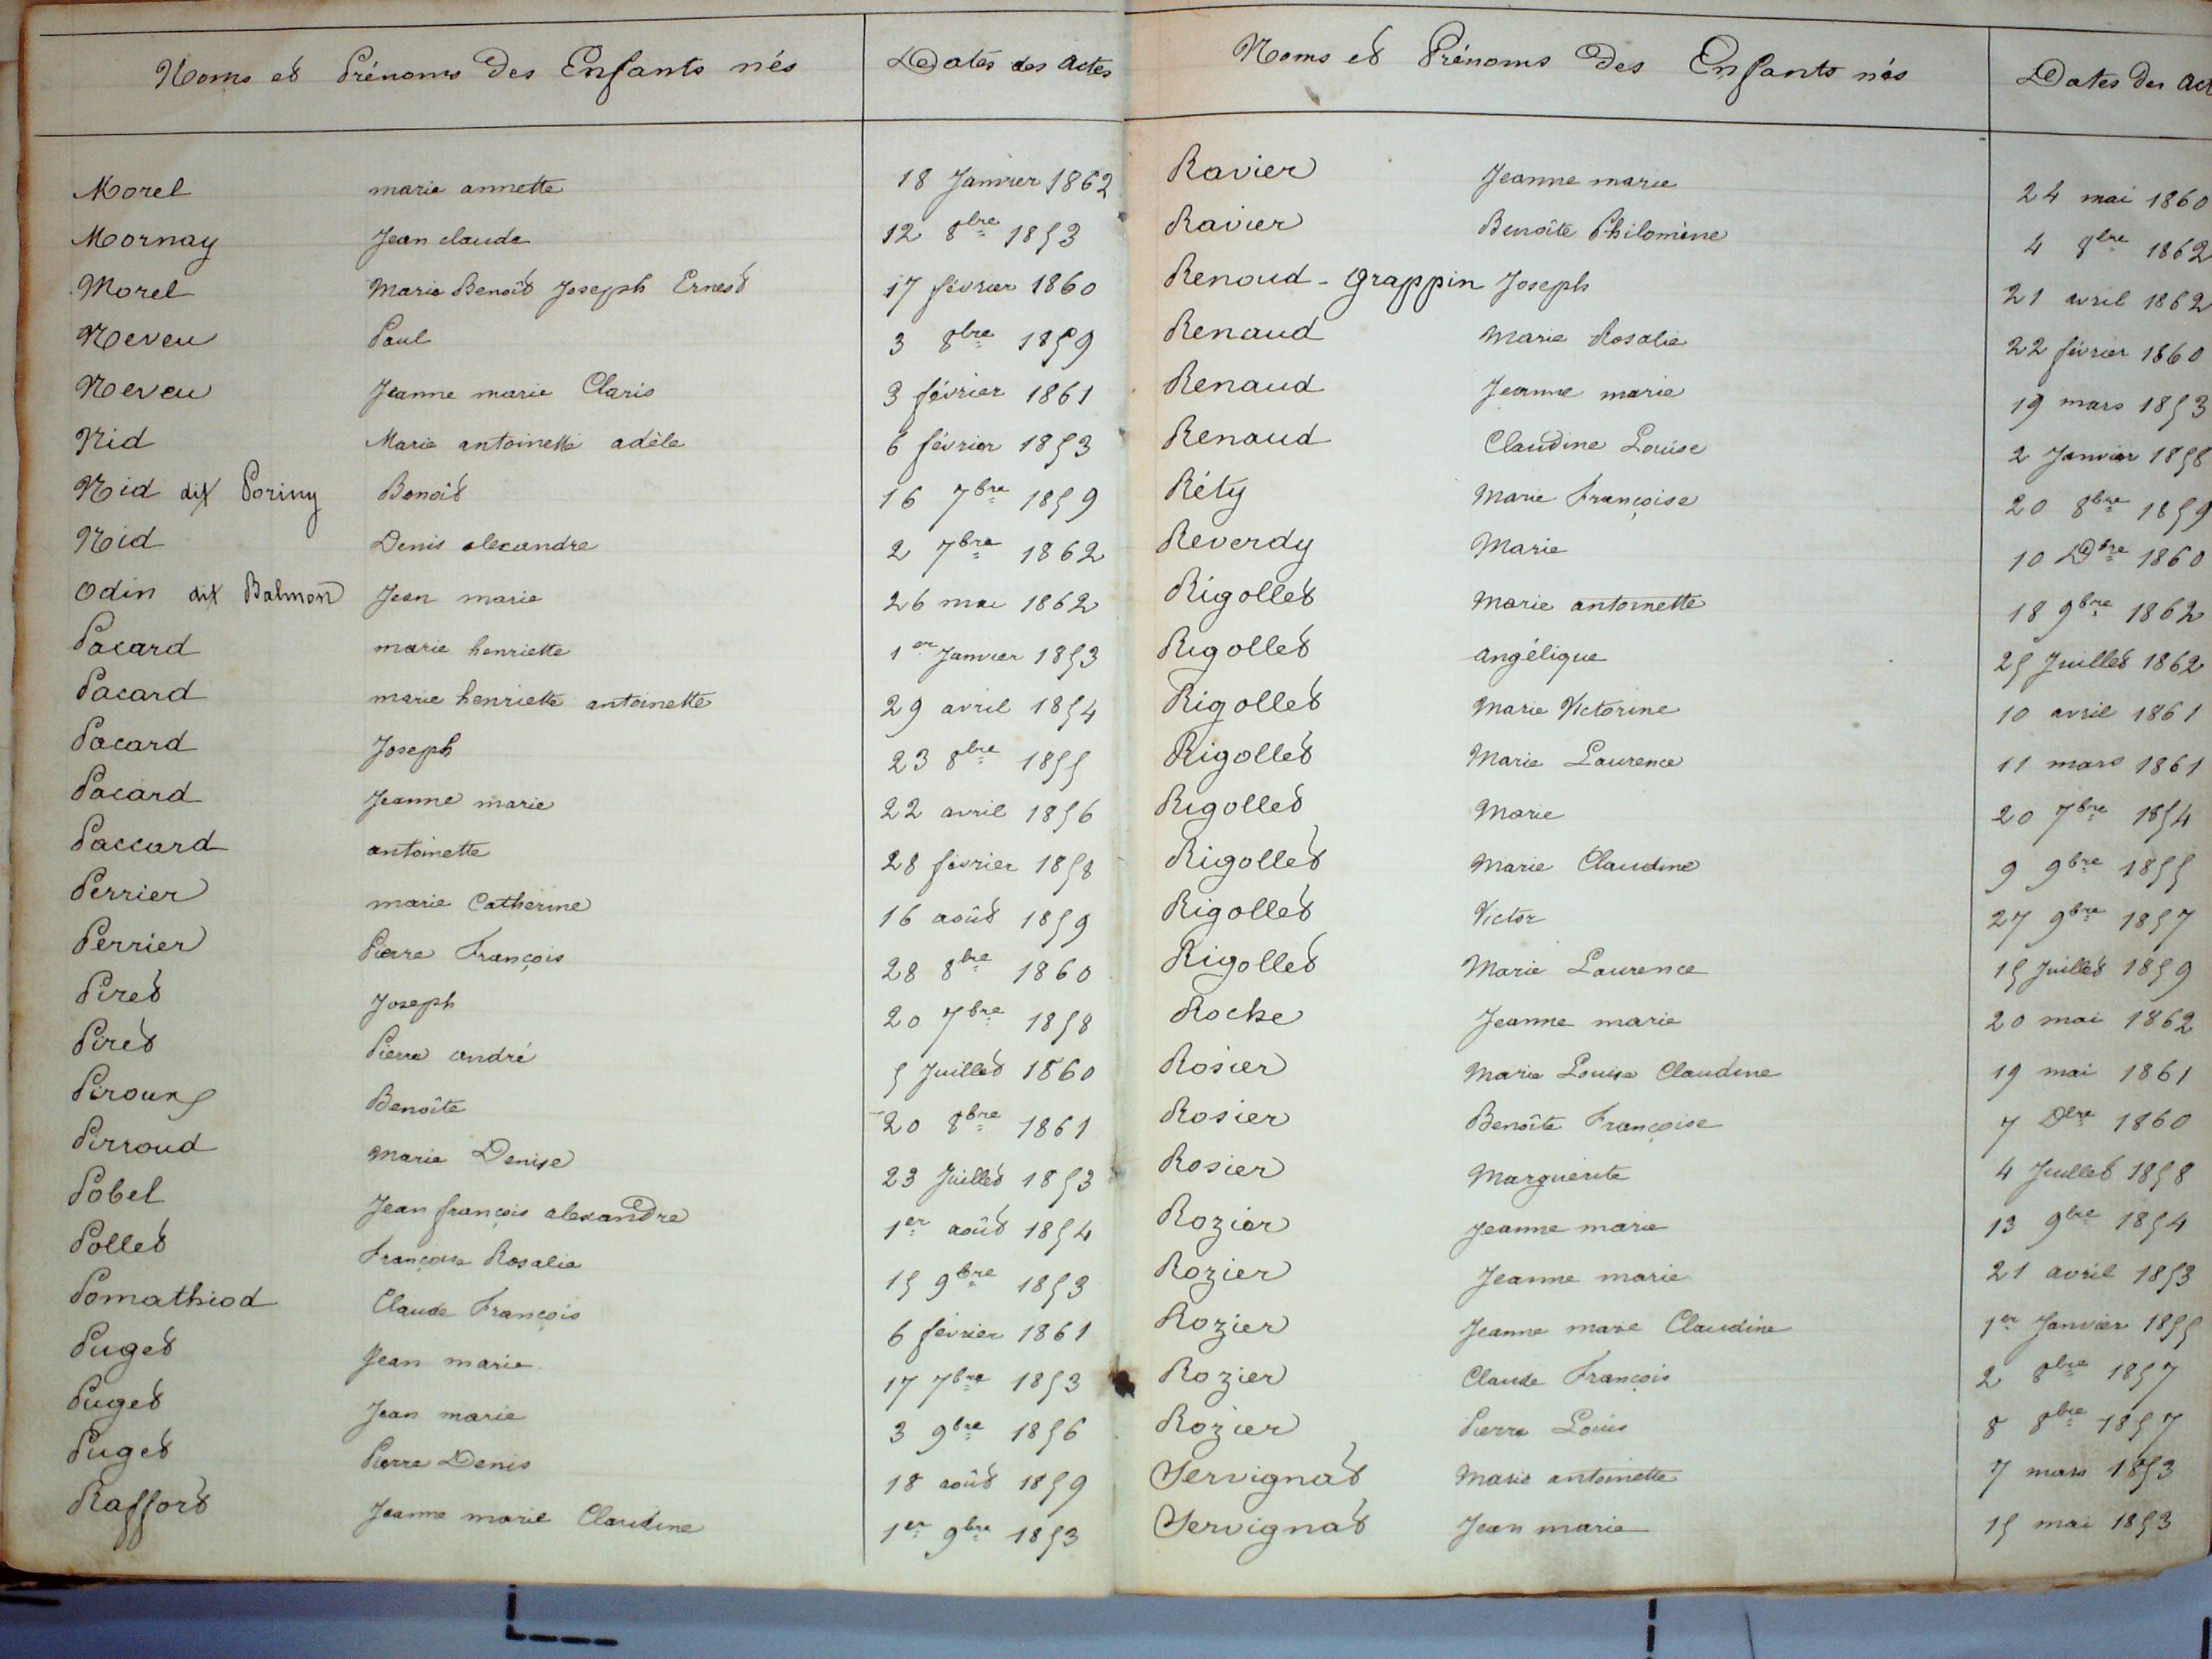 Noms et Prénoms des Enfants nés Dates des actes
Morel marie annette 18 Janvier 1862
Mornay Jean claude 12 8bre 1853
Morel Marie Benoît Joseph Ernest 17 février 1860
Neveu Paul 3 8bre 1859
Neveu Jeanne marie Claris 3 février 1861
Nid Marie antoinette adèle 6 février 1853
Nid dit Poriny Benoît 16 7bre 1859
Nid Denis alexandre 2 7bre 1862
Odin dit Balmon Jean marie 26 mai 1862
Pacard marie henriette 1er Janvier 1853
Pacard marie henriette antoinette 29 avril 1854
Pacard Joseph 23 8bre 1855
Pacard Jeanne marie 22 avril 1856
Paccard antoinette 28 février 1858
Perrier marie Catherine 16 août 1859
Perrier Pierre François 28 8bre 1860
Piret Joseph 20 7bre 1858
Piret Pierre andré 5 Juillet 1860
Piroux Benoîte 20 8bre 1861
Pirroud Marie Denise 23 Juillet 1853
Pobel Jean françois alexandre 1er août 1854
Pollet Françoise Rosalie 15 9bre 1853
Pomathiod Claude François 6 février 1861
Puget Jean marie 17 7bre 1853
Puget Jean marie 3 9bre 1856
Puget Pierre Denis 18 août 1859
Raffort Jeanne marie Claudine 1er 9bre 1853
Noms et Prénoms des Enfants nés Dates des Act
Ravier Jeanne marie 24 mai 1860
Ravier Benoîte Philomène 4 8bre 1862
Renoud-Grappin Joseph 21 avril 1862
Renaud Marie Rosalie 22 février 1860
Renaud Jeanne marie 19 mars 1853
Renaud Claudine Louise 2 Janvier 1858
Réty Marie Françoise 20 8bre 1859
Reverdy Marie 10 Dbre 1860
Rigollet Marie antoinette 18 9bre 1862
Rigollet angélique 25 Juillet 1862
Rigollet Marie Victorine 10 avril 1861
Rigollet Marie Laurence 11 mars 1861
Rigollet Marie 20 7bre 1854
Rigollet Marie Claudine 9 9bre 1855
Rigollet Victor 27 9bre 1857
Rigollet Marie Laurence 15 Juillet 1859
Roche Jeanne marie 20 mai 1862
Rosier Marie Louise Claudine 19 mai 1861
Rosier Benoîte Françoise 7 Dbre 1860
Rosier Marguerite 4 Juillet 1858
Rozier Jeanne marie 13 9bre 1854
Rozier Jeanne marie 21 avril 1853
Rozier Jeanne marie Claudine 1er Janvier 1855
Rozier Claude François 2 8bre 1857
Rozier Pierre Louis 8 8bre 1857
Servignat Marie antoinette 7 mars 1853
Servignat Jean marie 15 mai 1853